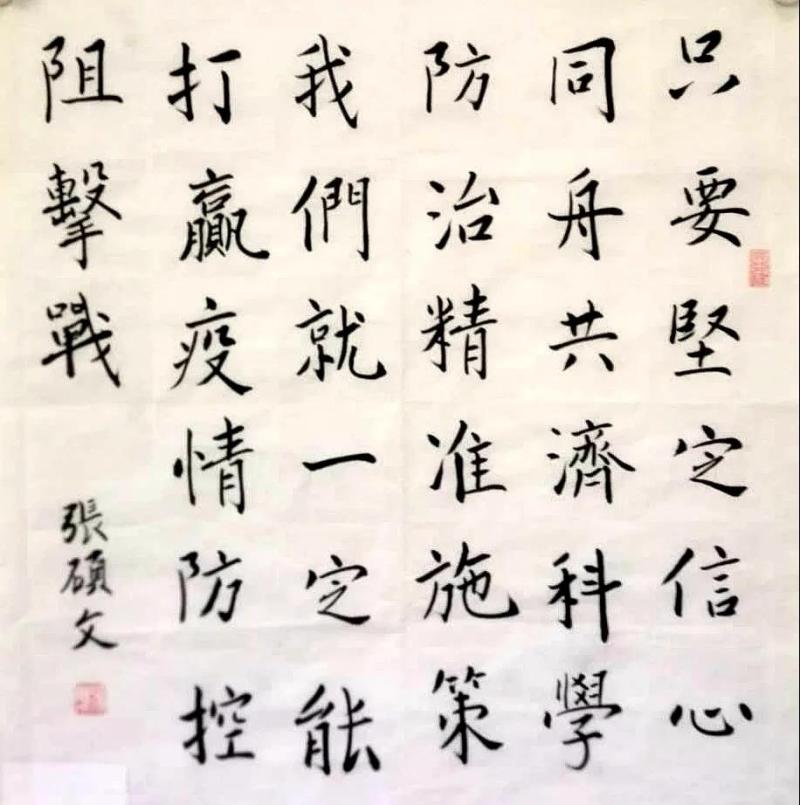 只要堅定信心
同舟共濟科學
防治精准施策
我們就一定能
打贏疫情防控
阻擊戰
張碩文